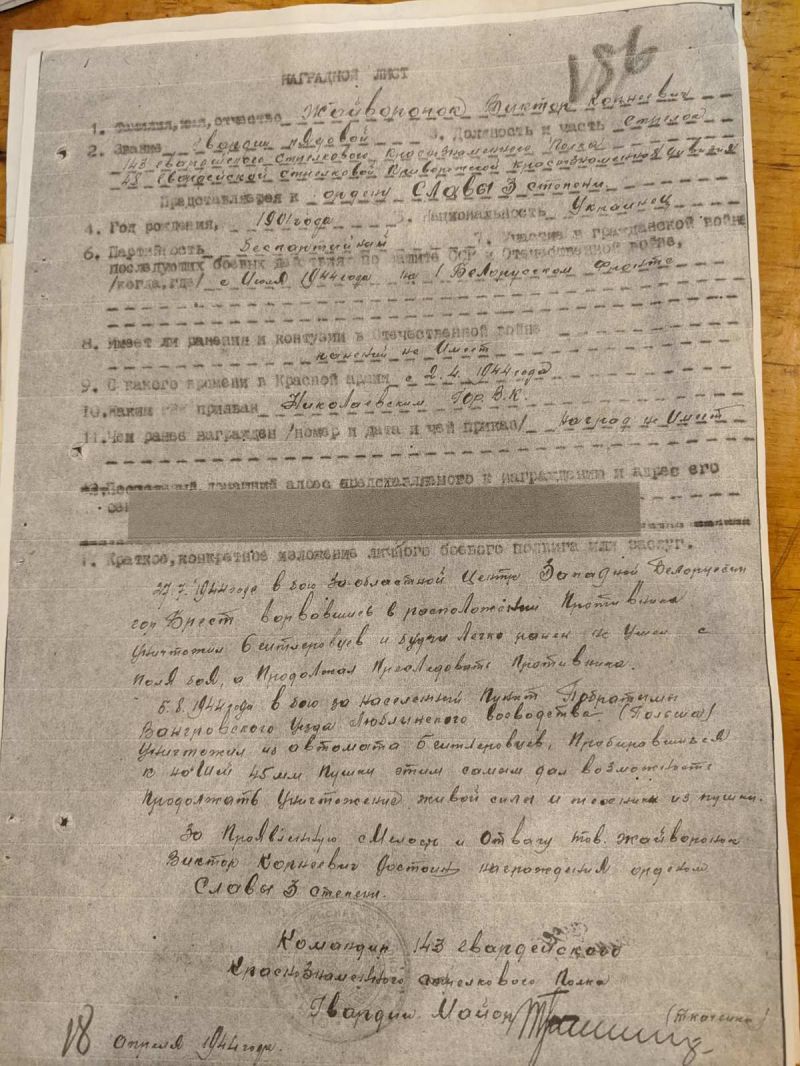 156
НАГРАДНОЙ ЛИСТ
1. Фамилия, имя, отчество Жайворонок Виктор Корнеевич
2. Звание гвардии рядовой 3. Должность и часть стрелок
143 гвардейского стрелкового Краснознаменного Полка
48 Гвардейской стрелковой Криворожской Краснознаменной дивизии
Представляется к ордену Славы 3 степени
4. Год рождения, 1901 года 5. Национальность Украинец
6. Партийность Беспартийный 7. Участие в гражданской войне
последующих боевых действиях по защите ССР и Отечественной войне,
/когда, где/ с Июля 1944 года на 1 Белорусском Фронте
8. Имеет ли ранения и контузии в Отечественной войне
не Имеет
9. С какого времени в Красной армии с 2.4.1944 года
10. Каким призван Николаевским Гор. В.К.
11. Чем ранее награжден /номер и дата и чей приказ/ наград не Имеет
домашний адрес представляемого к награждению и адрес его
1. Краткое, конкретное изложение личного боевого подвига или заслуг.
27.7.1944 года в бою за областной Центр Западной Белоруссии
гор Брест ворвавшись в расположении Противника
уничтожил 6 гитлеровцев и будучи Легко ранен не Ушел с
Поля боя, а Продолжал Преследовать Противника.
5.8.1944 года в бою за населенный Пункт Побратымы
Вангровского уезда Люблинского воеводства (Польша)
Уничтожил из автомата 6 гитлеровцев, Пробиравшихся
к нашей 45 мм Пушки этим самым дал возможность
Продолжать Уничтожение живой силы и техники из пушки.
За Проявленную Смелость и Отвагу тов. Жайворонок
Виктор Корнеевич Достоин награждения орденом
Славы 3 степени.
Командир 143 гвардейского
Краснознаменного стрелкового Полка
Гвардии Майор (Ткаченко)
18 апреля 1944 года.